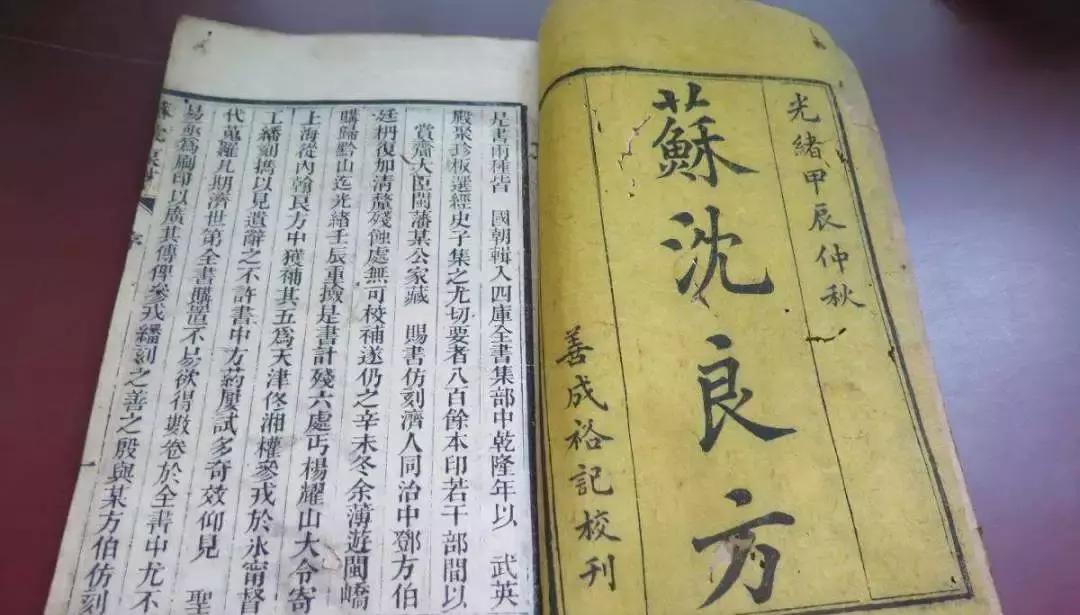 光緒甲辰仲秋
蘇沈良方
善成裕記校刊
是書兩種皆 國朝輯入四庫全書集部中乾隆年以 武英
殿聚珍板選經史子集之尤切要者八百餘本印若干部間以
賞齎大臣閩藩某公家藏 賜書仿刻濟人同治中鄧方伯
廷枏復加清釐殘蝕處無可校補遂仍之辛未冬余薄遊閩嶠
購歸黔山迄光緒壬辰重撿是書計殘六處丐楊耀山大令寄
上海從內翰良方中獲補其五爲天津佟湘權參戎於永甯督
工繙刻擕以見遺辭之不許書中方葯屢試多奇效仰見 聖
代蒐羅凡期濟世第全書購置不易欲得數卷於全書中尤不
易亟爲刷印以廣其傳俾參戎繙刻之善之殷與某方伯仿刻
一